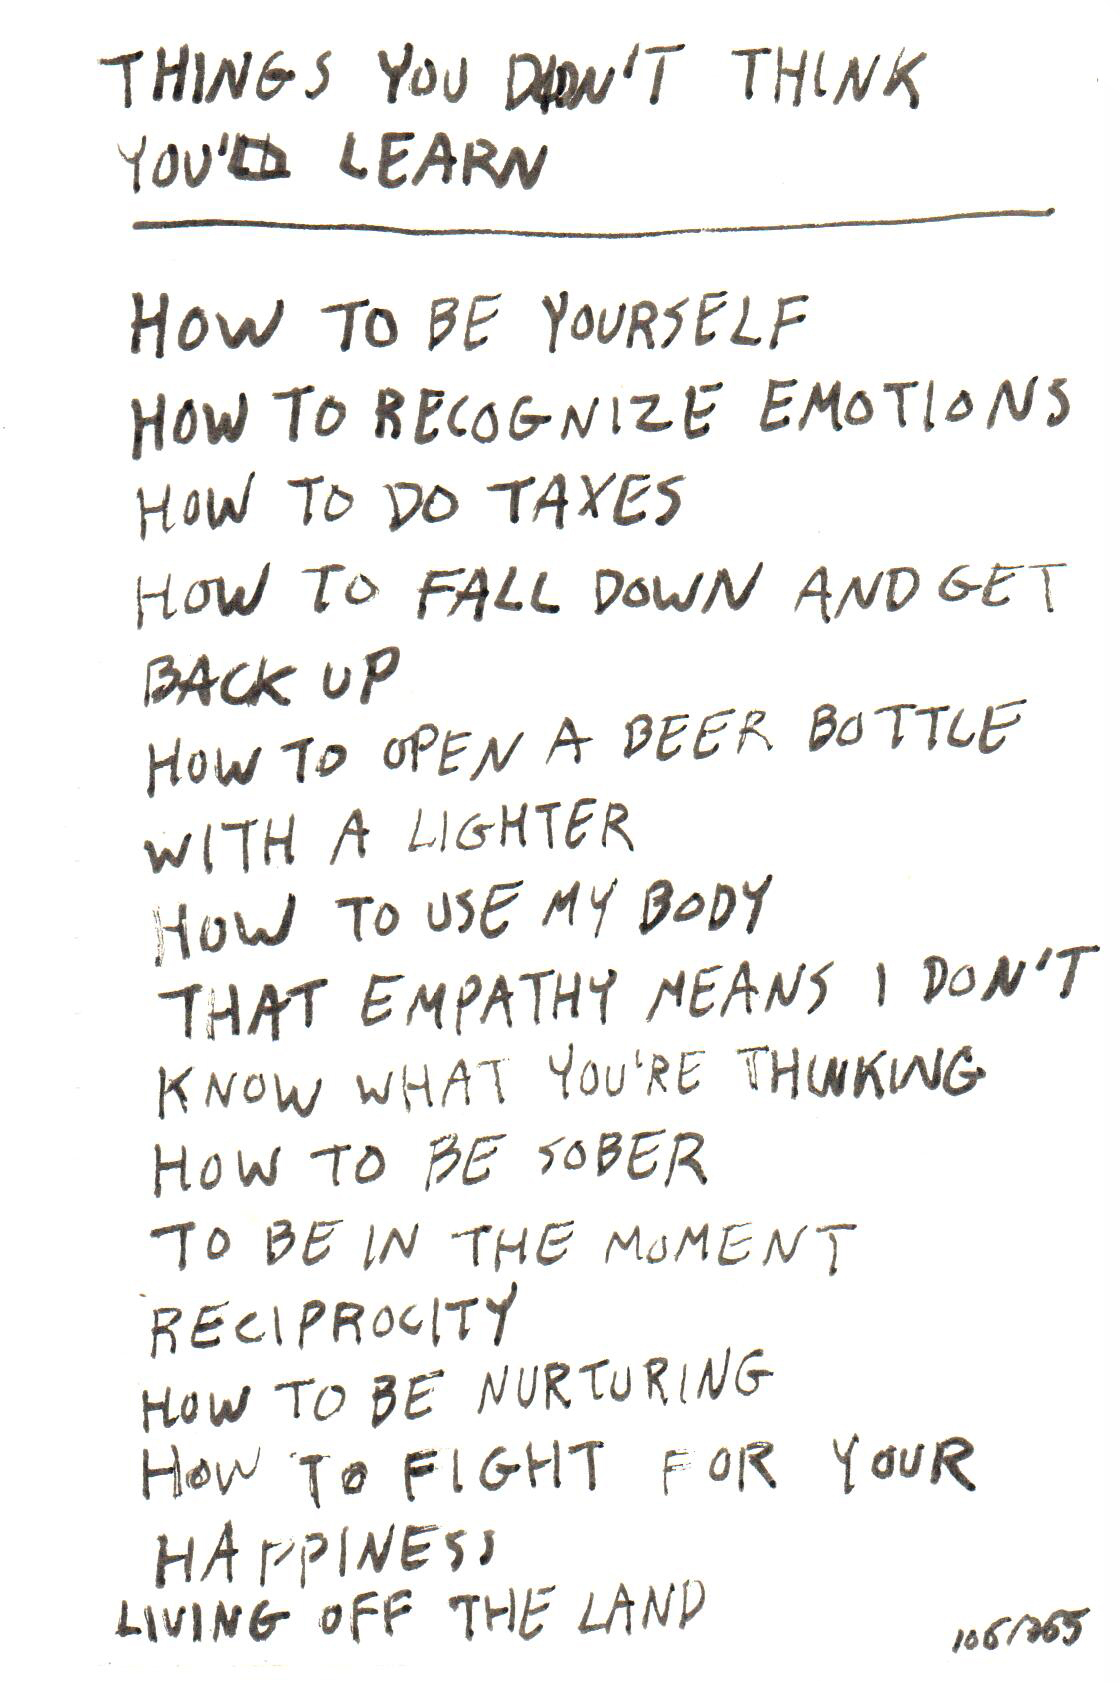 THINGS YOU DIDN'T THINK
YOU'D LEARN
HOW TO BE YOURSELF
HOW TO RECOGNIZE EMOTIONS
HOW TO DO TAXES
HOW TO FALL DOWN AND GET
BACK UP
HOW TO OPEN A BEER BOTTLE
WITH A LIGHTER
HOW TO USE MY BODY
THAT EMPATHY MEANS I DON'T
KNOW WHAT YOU'RE THINKING
HOW TO BE SOBER
TO BE IN THE MOMENT
RECIPROCITY
HOW TO BE NURTURING
HOW TO FIGHT FOR YOUR
HAPPINESS
LIVING OFF THE LAND
106/365